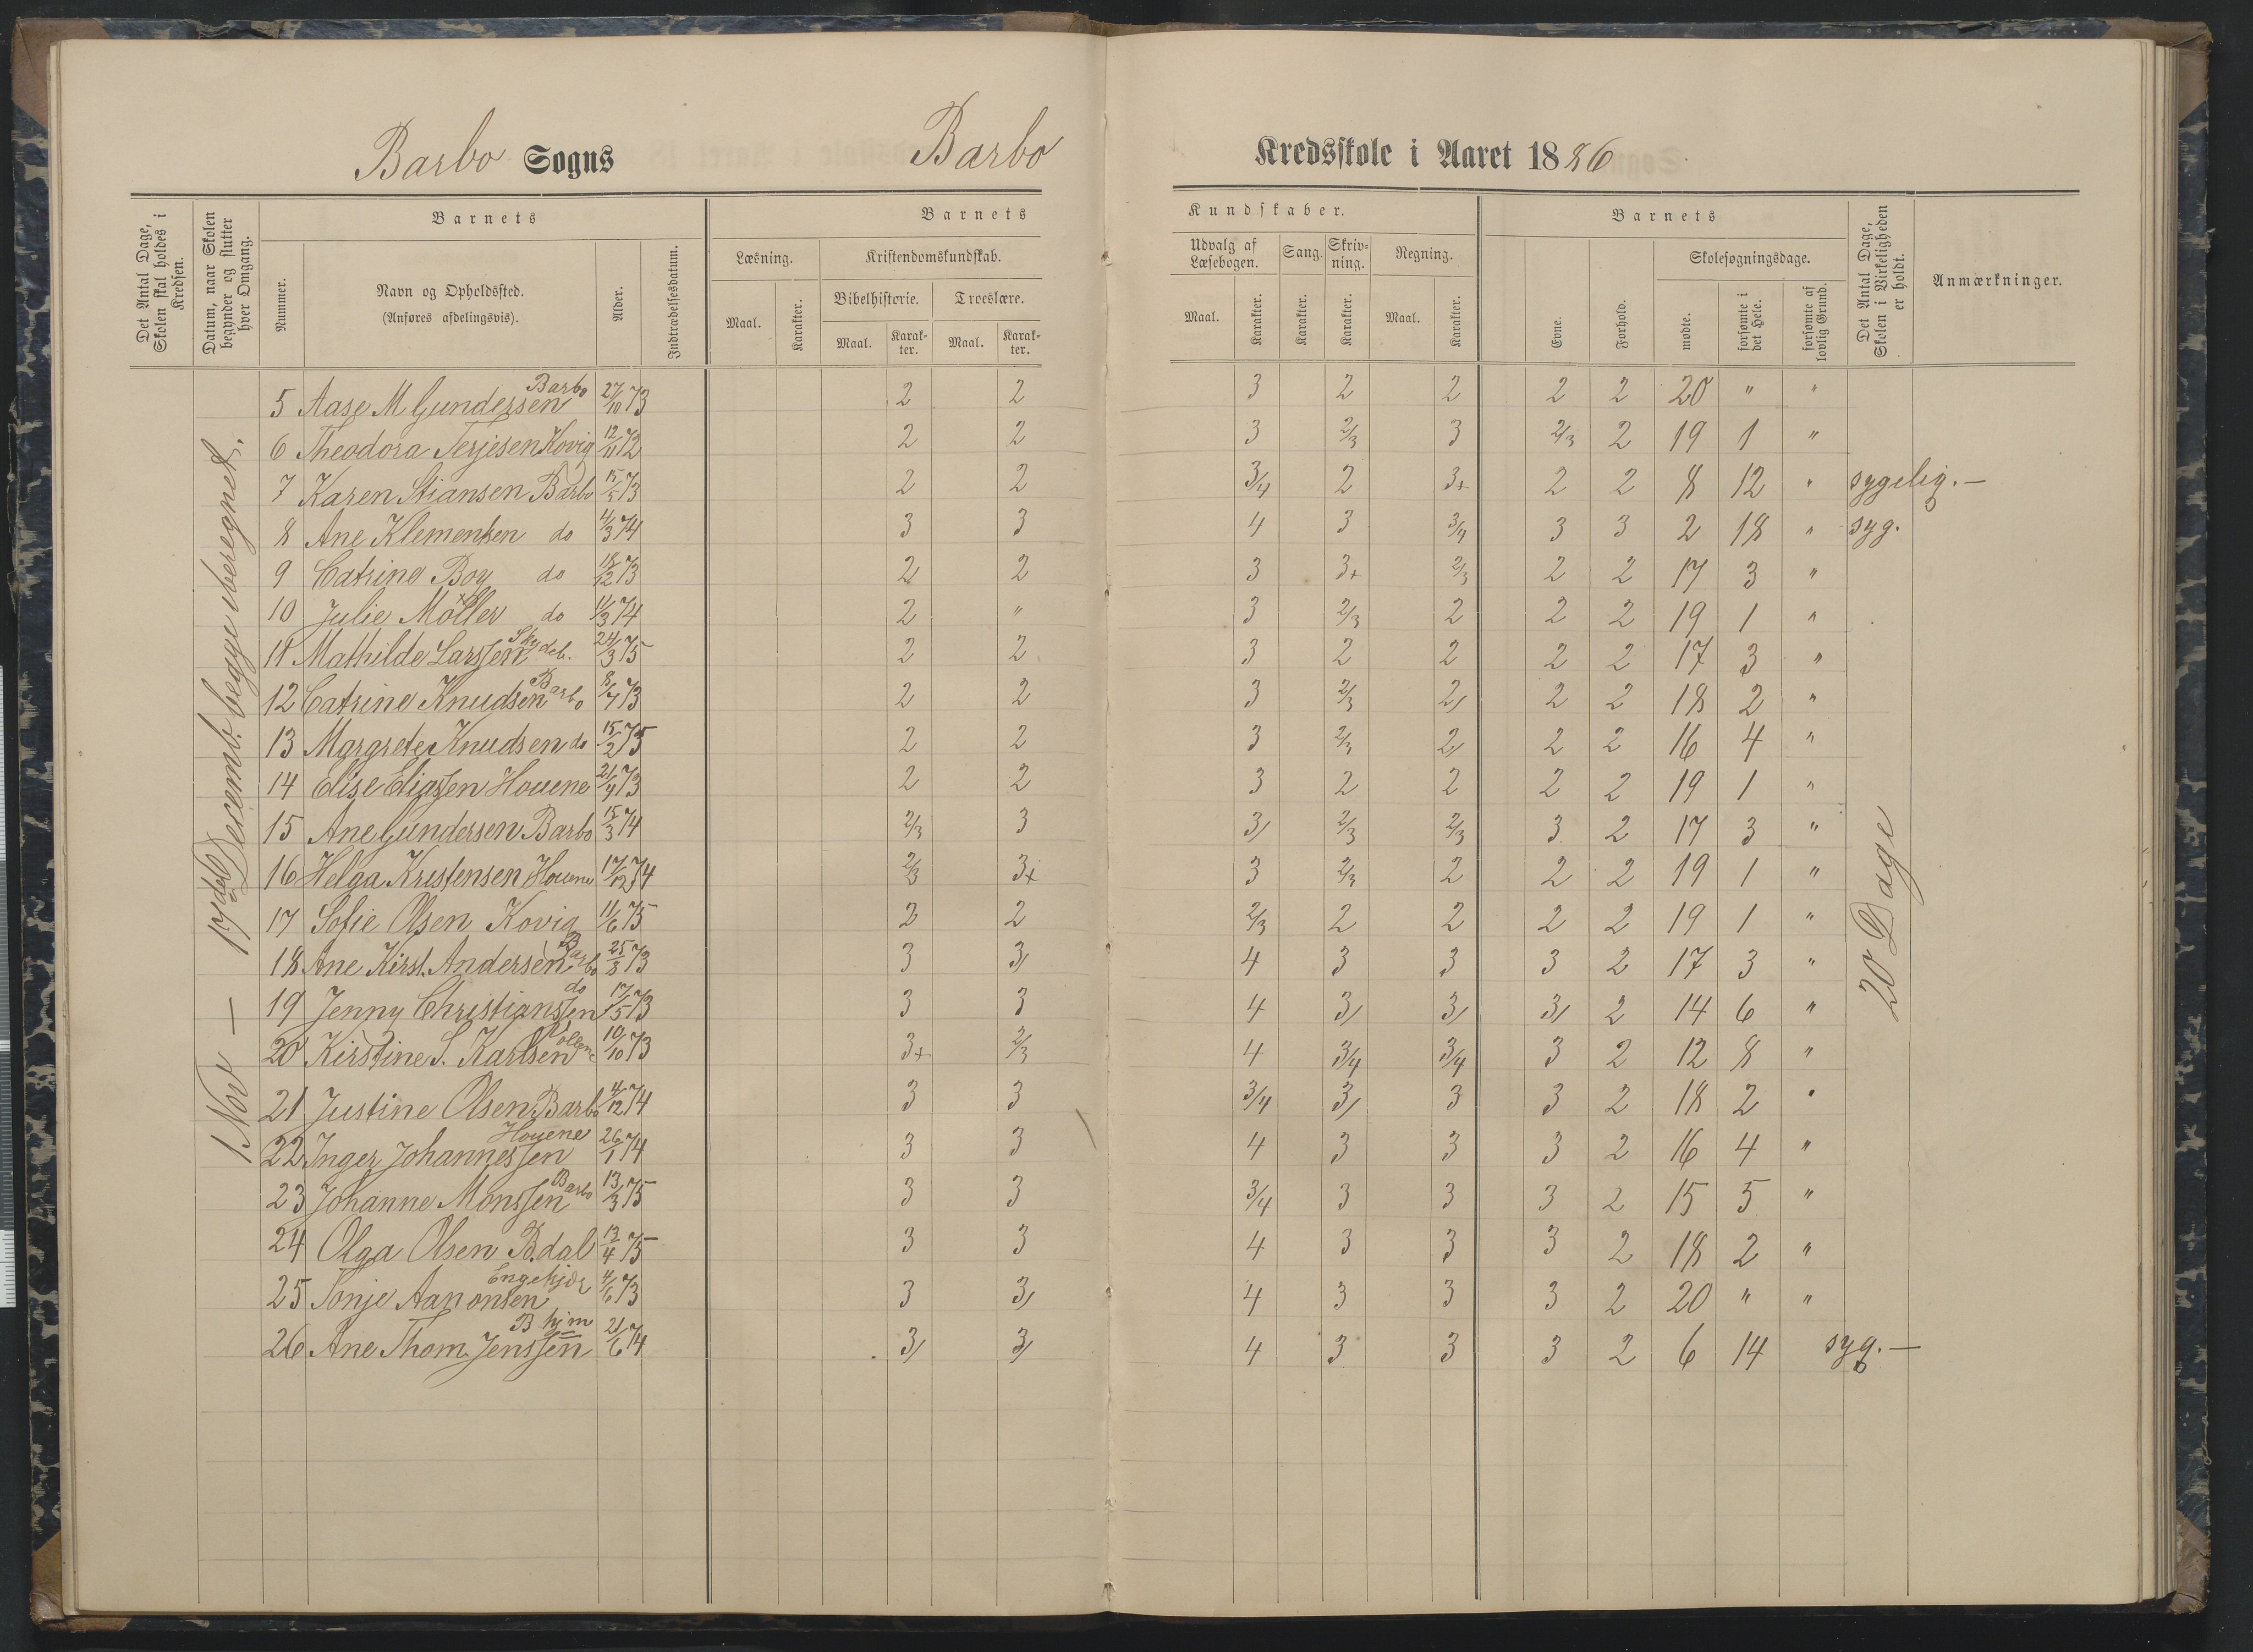 Barbo Sogns Barbo Kredsskole i Aaret 1886
Det Antal Dage, Skolen skal holdes i Kredsen.
Datum, naar Skolen begynder og slutter hver Omgang.
Barnets
Nummer.
Navn og Opholdssted.
(Anføres afdelingsvis).
Alder.
Indtrædelsesdatum.
Barnets Kundskaber.
Læsning.
Maal.
Karakter.
Kristendomskundskab.
Bibelhistorie.
Maal.
Karakter.
Troeslære.
Maal.
Karakter.
Udvalg af Læsebogen.
Maal.
Karakter.
Sang.
Karakter.
Skrivning.
Karakter.
Regning.
Maal.
Karakter.
Barnets
Evne.
Forhold.
Skolesøgningsdage.
mødte.
forsømte i det Hele.
forsømte af lovlig Grund.
Det Antal Dage, Skolen i Virkeligheden er holdt.
Anmærkninger.
1 Nov — 17de Decemb. begge iberegnet.
5 Aase M Gundersen Barbo 27/10 73 2 2 3 2 2 2 2 20 " "
6 Theodora Terjesen Kovig 12/11 72 2 2 3 2/3 3 2/3 2 19 1 "
7 Karen Stiansen Barbo 15/5 73 2 2 3/4 2 3+ 2 2 8 12 " sygelig.—
8 Ane Klemensen do 4/3 74 3 3 4 3 3/4 3 3 2 18 " syg.
9 Catrine Boy do 18/12 73 2 2 3 3+ 2/3 2 2 17 3 "
10 Julie Möller do 11/3 74 2 " 3 2/3 2 2 2 19 1 "
11 Mathilde Larssen 24/3 75 2 2 3 2 2 2 2 17 3 "
12 Catrine Knudsen Barbo 8/7 73 2 2 3 2/3 2/ 2 2 18 2 "
13 Margrete Knudsen do 15/2 75 2 2 3 2/3 2/ 2 2 16 4 "
14 Elise Eliassen Houene 21/9 73 2 2 3 2 2 2 2 19 1 "
15 Ane Gundersen Barbo 15/3 74 2/3 3 3/ 2/3 2/3 3 2 17 3 "
16 Helga Kristensen Houene 17/12 74 2/3 3+ 3 2/3 2 2 2 19 1 "
17 Sofie Olsen Kovig 11/6 75 2 2 2/3 2 2 2 2 19 1 "
18 Ane Kirst. Andersen Barbo 25/8 73 3 3/ 4 3 3 3 2 17 3 "
19 Jenny Christianssen do 17/5 73 3 3 4 3/ 3/ 3/ 2 14 6 "
20 Kirstine S. Karlsen 10/10 73 3+ 2/3 4 3/4 3/4 3 2 12 8 "
21 Justine Olsen Barbo 4/12 74 3 3 3/4 3/ 3 3 2 18 2 "
22 Inger Johannessen Houene 26/1 74 3 3 4 3 3 3 2 16 4 "
23 Johanne Monssen Barbo 13/3 75 3 3 3/4 3 3 3 2 15 5 "
24 Olga Olsen B.dal 13/4 75 3 3 4 3 3 3 2 18 2 "
25 Tonje Aanonsen Engekjær 4/6 73 3 3/ 4 3 3 3 2 20 " "
26 Ane Thom. Jenssen B hjm 21/6 74 3/ 3/ 4 3 3 3 2 6 14 syg.—
20 Dage